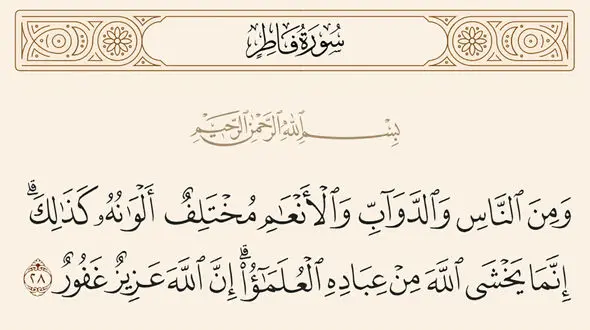 سُورَةُ فَاطِرٍ
بِسْمِ ٱللَّهِ ٱلرَّحْمَٰنِ ٱلرَّحِيمِ
وَمِنَ ٱلنَّاسِ وَٱلدَّوَآبِّ وَٱلْأَنْعَٰمِ مُخْتَلِفٌ أَلْوَٰنُهُۥ كَذَٰلِكَ ۗ
إِنَّمَا يَخْشَى ٱللَّهَ مِنْ عِبَادِهِ ٱلْعُلَمَٰٓؤُا۟ ۗ إِنَّ ٱللَّهَ عَزِيزٌ غَفُورٌ ٢٨